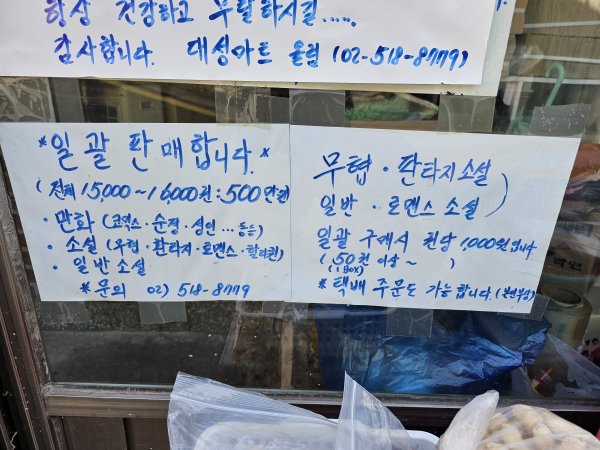 항상 건강하고 무탈하시길.....
감사합니다. 대성마트 올림 (02-518-8779)
*일괄 판매합니다.*
(전체 15,000~16,000권:500만원)
·만화 (코믹스·순정·성인... 등등)
·소설 (무협·환타지·로맨스·할리퀸)
·일반소설
*문의 02) 518-8779
무협·판타지소설
일반·로맨스 소설
일괄 구매시 권당 1,000원입니다
(50권 이상~ )
(1 BOX)
*택배 주문도 가능합니다.(본인부담)
라면